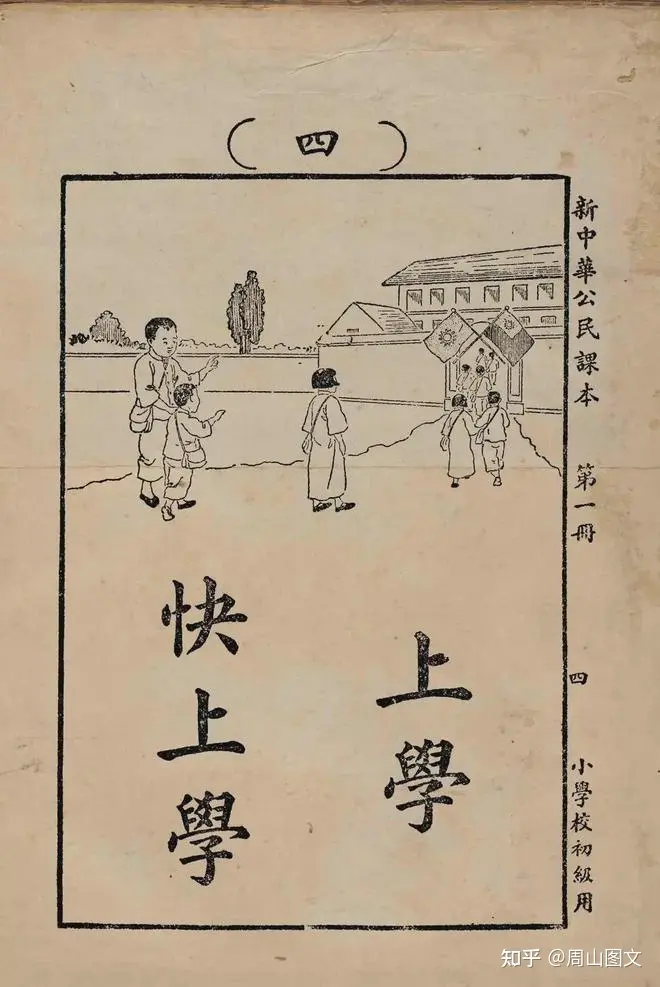 （四）
上學
快上學
新中華公民課本 第一冊 四 小學校初級用
知乎 @周山图文